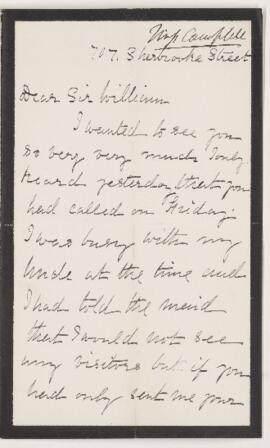 Miss Campbell
707. Sherbrooke Street
Dear Sir William
I wanted to see you
so very very much I only
heard yesterday that you
had called on Friday
I was busy with my
Uncle at the time and
I had told the maid
that I would not see
any visitors but if you
had only sent me your